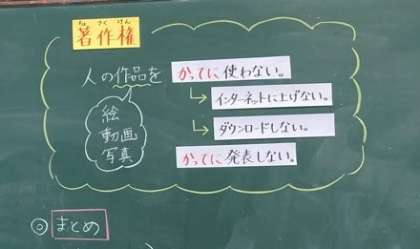 ちょさくけん
著作権
人の作品を かってに使わない。
↳インターネットに上げない。
絵
動画
写真
↳ダウンロードしない。
かってに発表しない。
◎まとめ